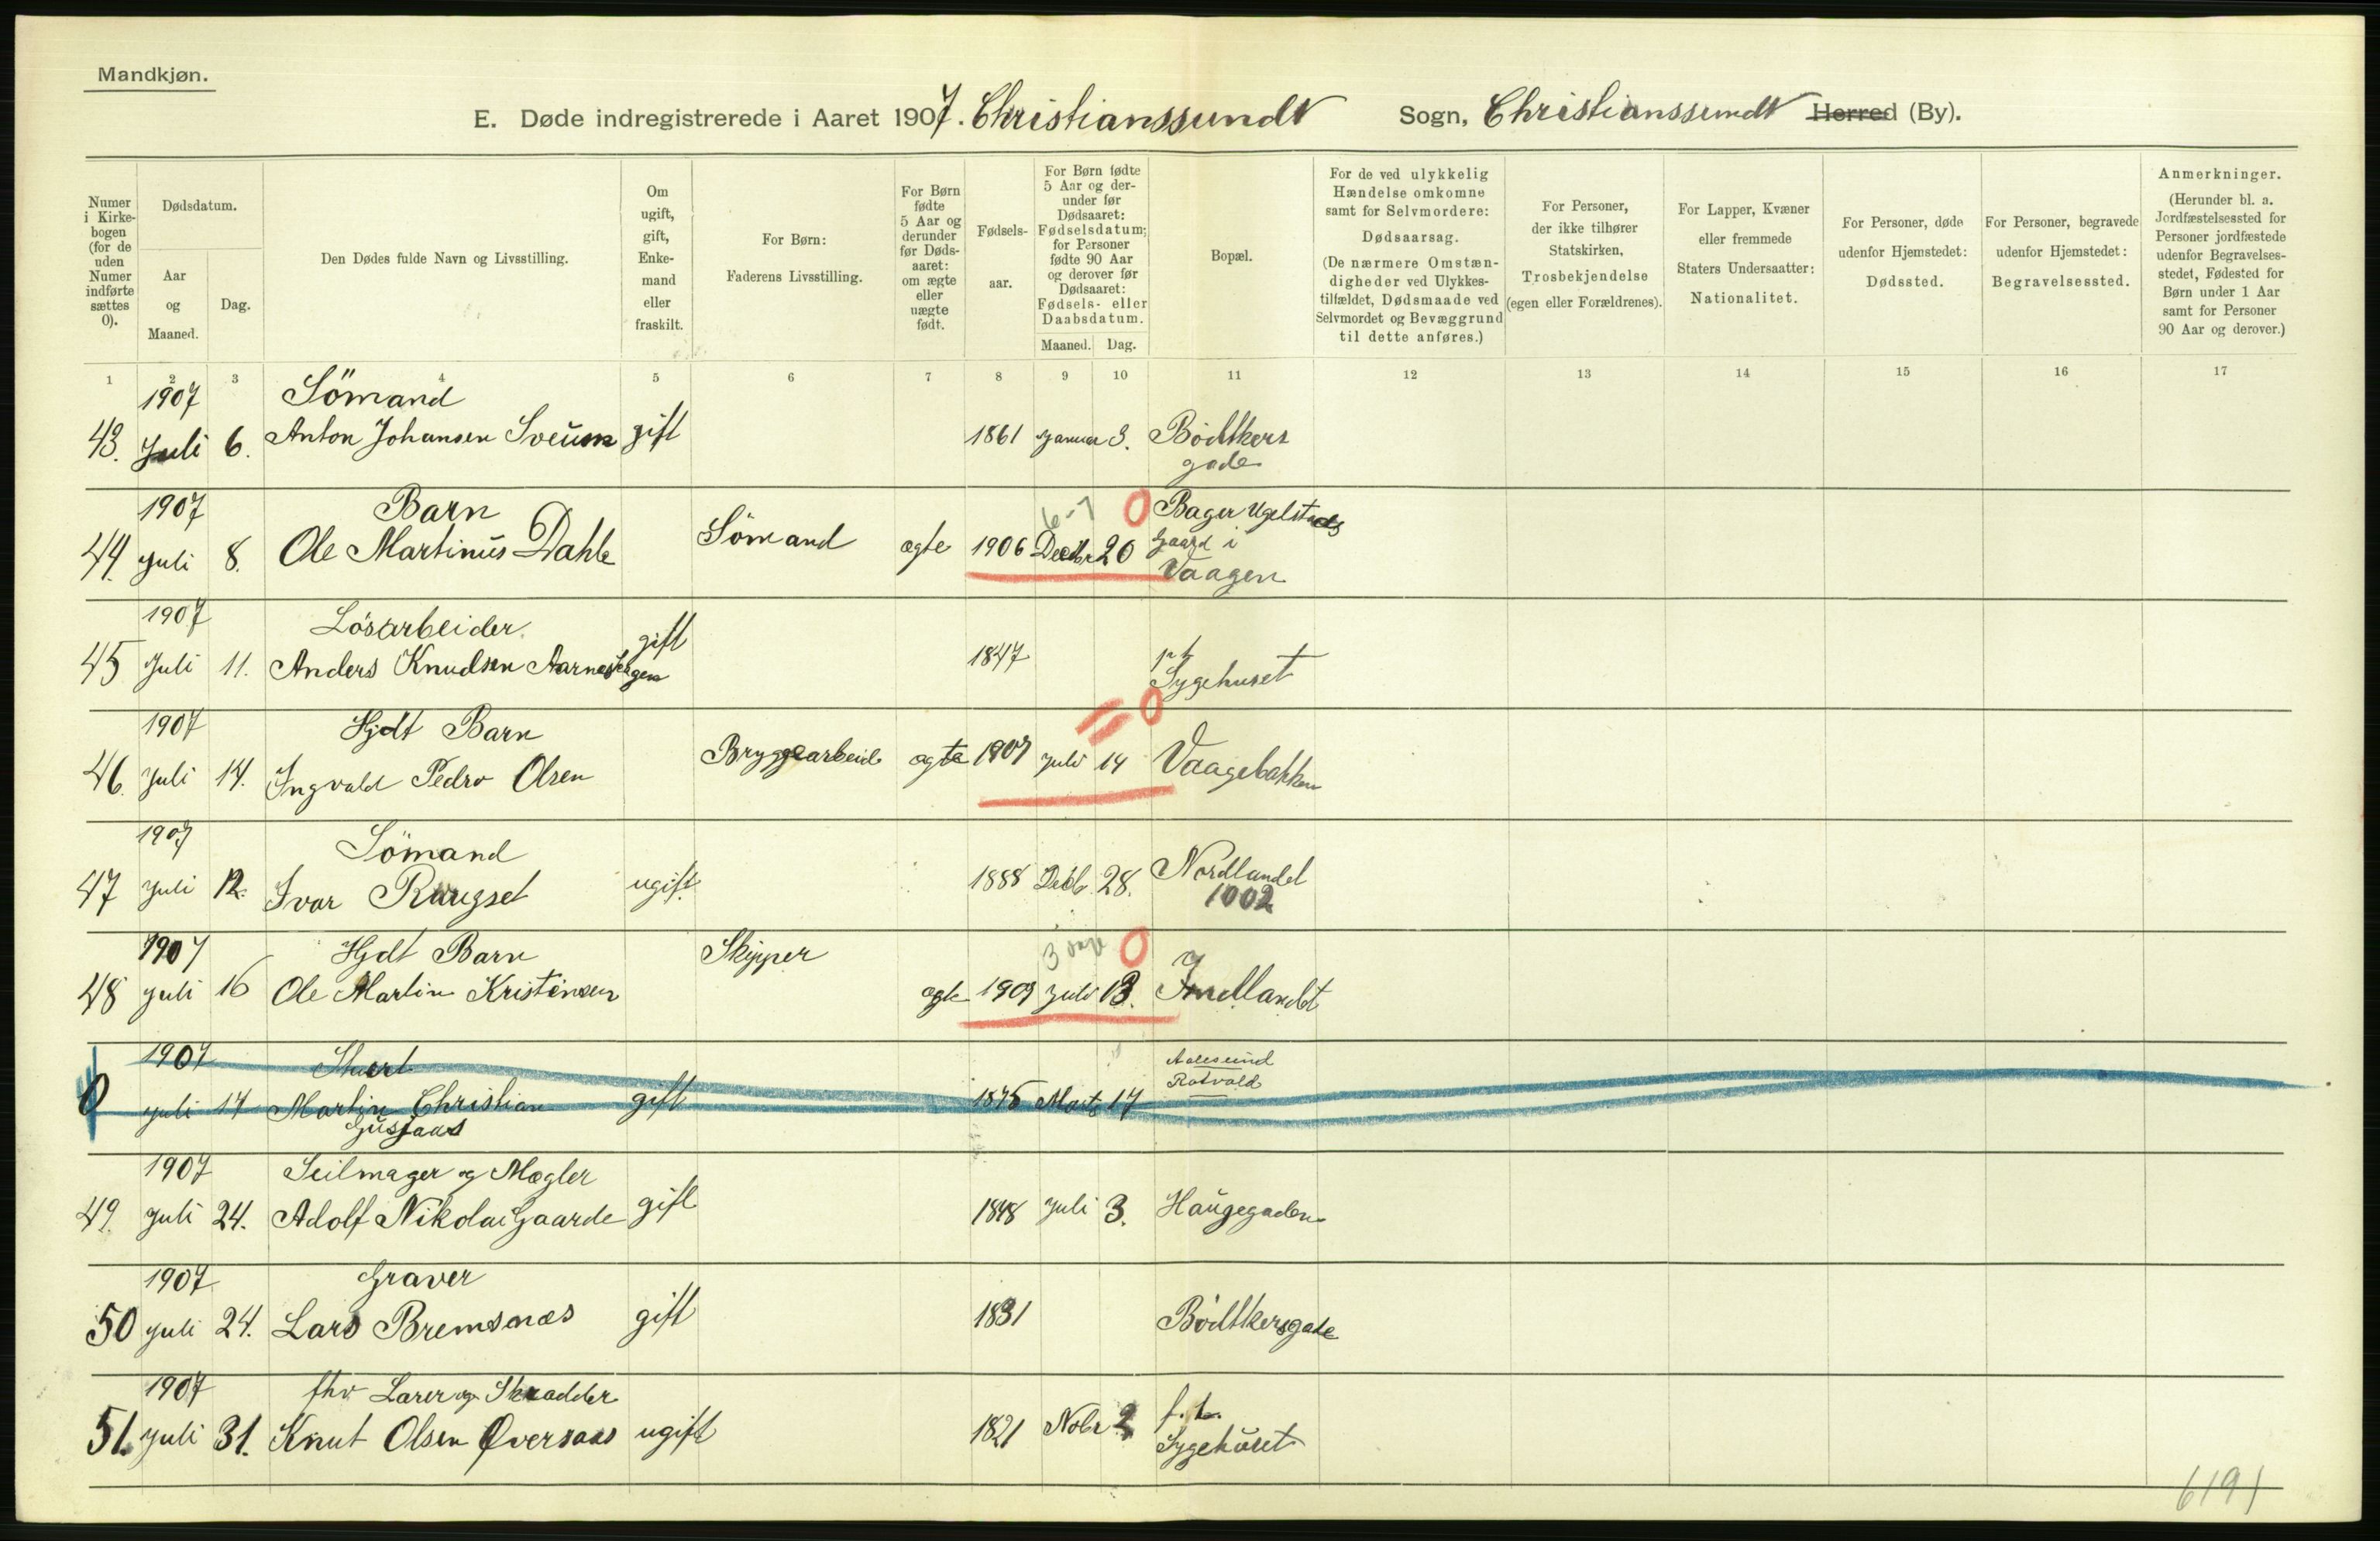 Mandkjøn.
E. Døde indregistrerede i Aaret 1907. Christianssundt Sogn, Christianssundt Herred (By).
Numer i Kirkebogen (for de uden Numer indførte sættes 0).
Dødsdatum.
Aar og Maaned.
Dag.
Den Dødes fulde Navn og Livsstilling.
Om ugift, gift, Enkemand eller fraskilt.
For Børn: Faderens Livsstilling.
For Børn fødte 5 Aar og derunder før Dødsaaret: om ægte eller uægte født.
Fødselsaar.
For Børn fødte 5 Aar og derunder før Dødsaaret: Fødselsdatum; for Personer fødte 90 Aar og derover før Dødsaaret: Fødsels- eller Daabsdatum.
Maaned. Dag.
Bopæl.
For de ved ulykkelig Hændelse omkomne samt for Selvmordere: Dødsaarsag. (De nærmere Omstændigheder ved Ulykkestilfældet, Dødsmaade ved Selvmordet og Bevæggrund til dette anføres.)
For Personer, der ikke tilhører Statskirken, Trosbekjendelse (egen eller Forældrenes).
For Lapper, Kvæner eller fremmede Staters Undersaatter: Nationalitet.
For Personer, døde udenfor Hjemstedet: Dødssted.
For Personer, begravede udenfor Hjemstedet: Begravelsessted.
Anmerkninger. (Herunder bl. a. Jordfæstelsessted for Personer jordfæstede udenfor Begravelsesstedet, Fødested for Børn under 1 Aar samt for Personer 90 Aar og derover.)
1 2 3 4 5 6 7 8 9 10 11 12 13 14 15 16 17
1907 Sömand
43. Juli 6. Anton Johansen Sveum gift 1861 Januar 3. Bödtkers
gade
1907 Barn 6-7 0 Bager Ugelstads
44. Juli 8. Ole Martinus Dahle Sömand ægte 1906 Decbr 20 Gaard i
Vaagen
1907 Lösarbeider gift
45 Juli 11. Anders Knudsen Aarneshagen 1847 p.t.
Sygehuset
1907 Hjdt Barn 0
46. Juli 14. Ingvald Pedro Olsen Bryggearbeid. ægte 1907 Juli 14 Vaagebakken
1907 Sömand
47 Juli 12. Ivar Raugset ugift 1888 Decb. 28. Nordlandet
1002
1907 Hjdt Barn Skipper 3 dage 0
48 Juli 16 Ole Martin Kristensen ægte 1907 Juli 13. Indlandet
1907 Stuert Aalesund
0 Juli 17 Martin Christian gift 1875 Marts 17 Rotvold
1907 Seilmager og Mægler
49. Juli 24. Adolf Nikolai Gaarde gift 1848 Juli 3. Haugegaden
1907 Graver
50 Juli 24. Lars Bremsnæs gift 1831 Bödtkersgade
1907 fhv Lærer og Skrædder
51. Juli 31. Knut Olsen Øversaas ugift 1821 Nobr 2 p.t.
Sygehuset
6191